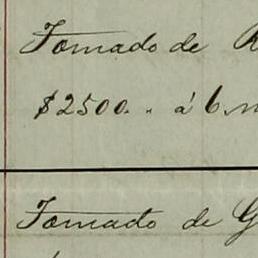 Tomado de
$2500.. á 6
Tomado de G